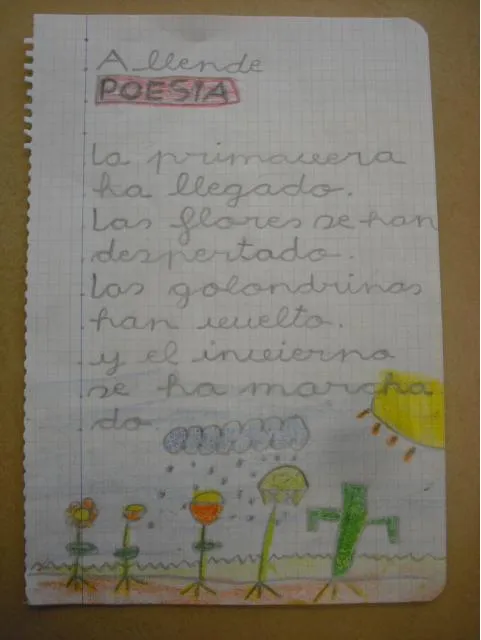 Allende
POESIA
La primavera
ha llegado.
Las flores se han
despertado.
Las golondrinas
han vuelto.
y el invierno
se ha marcha
do.